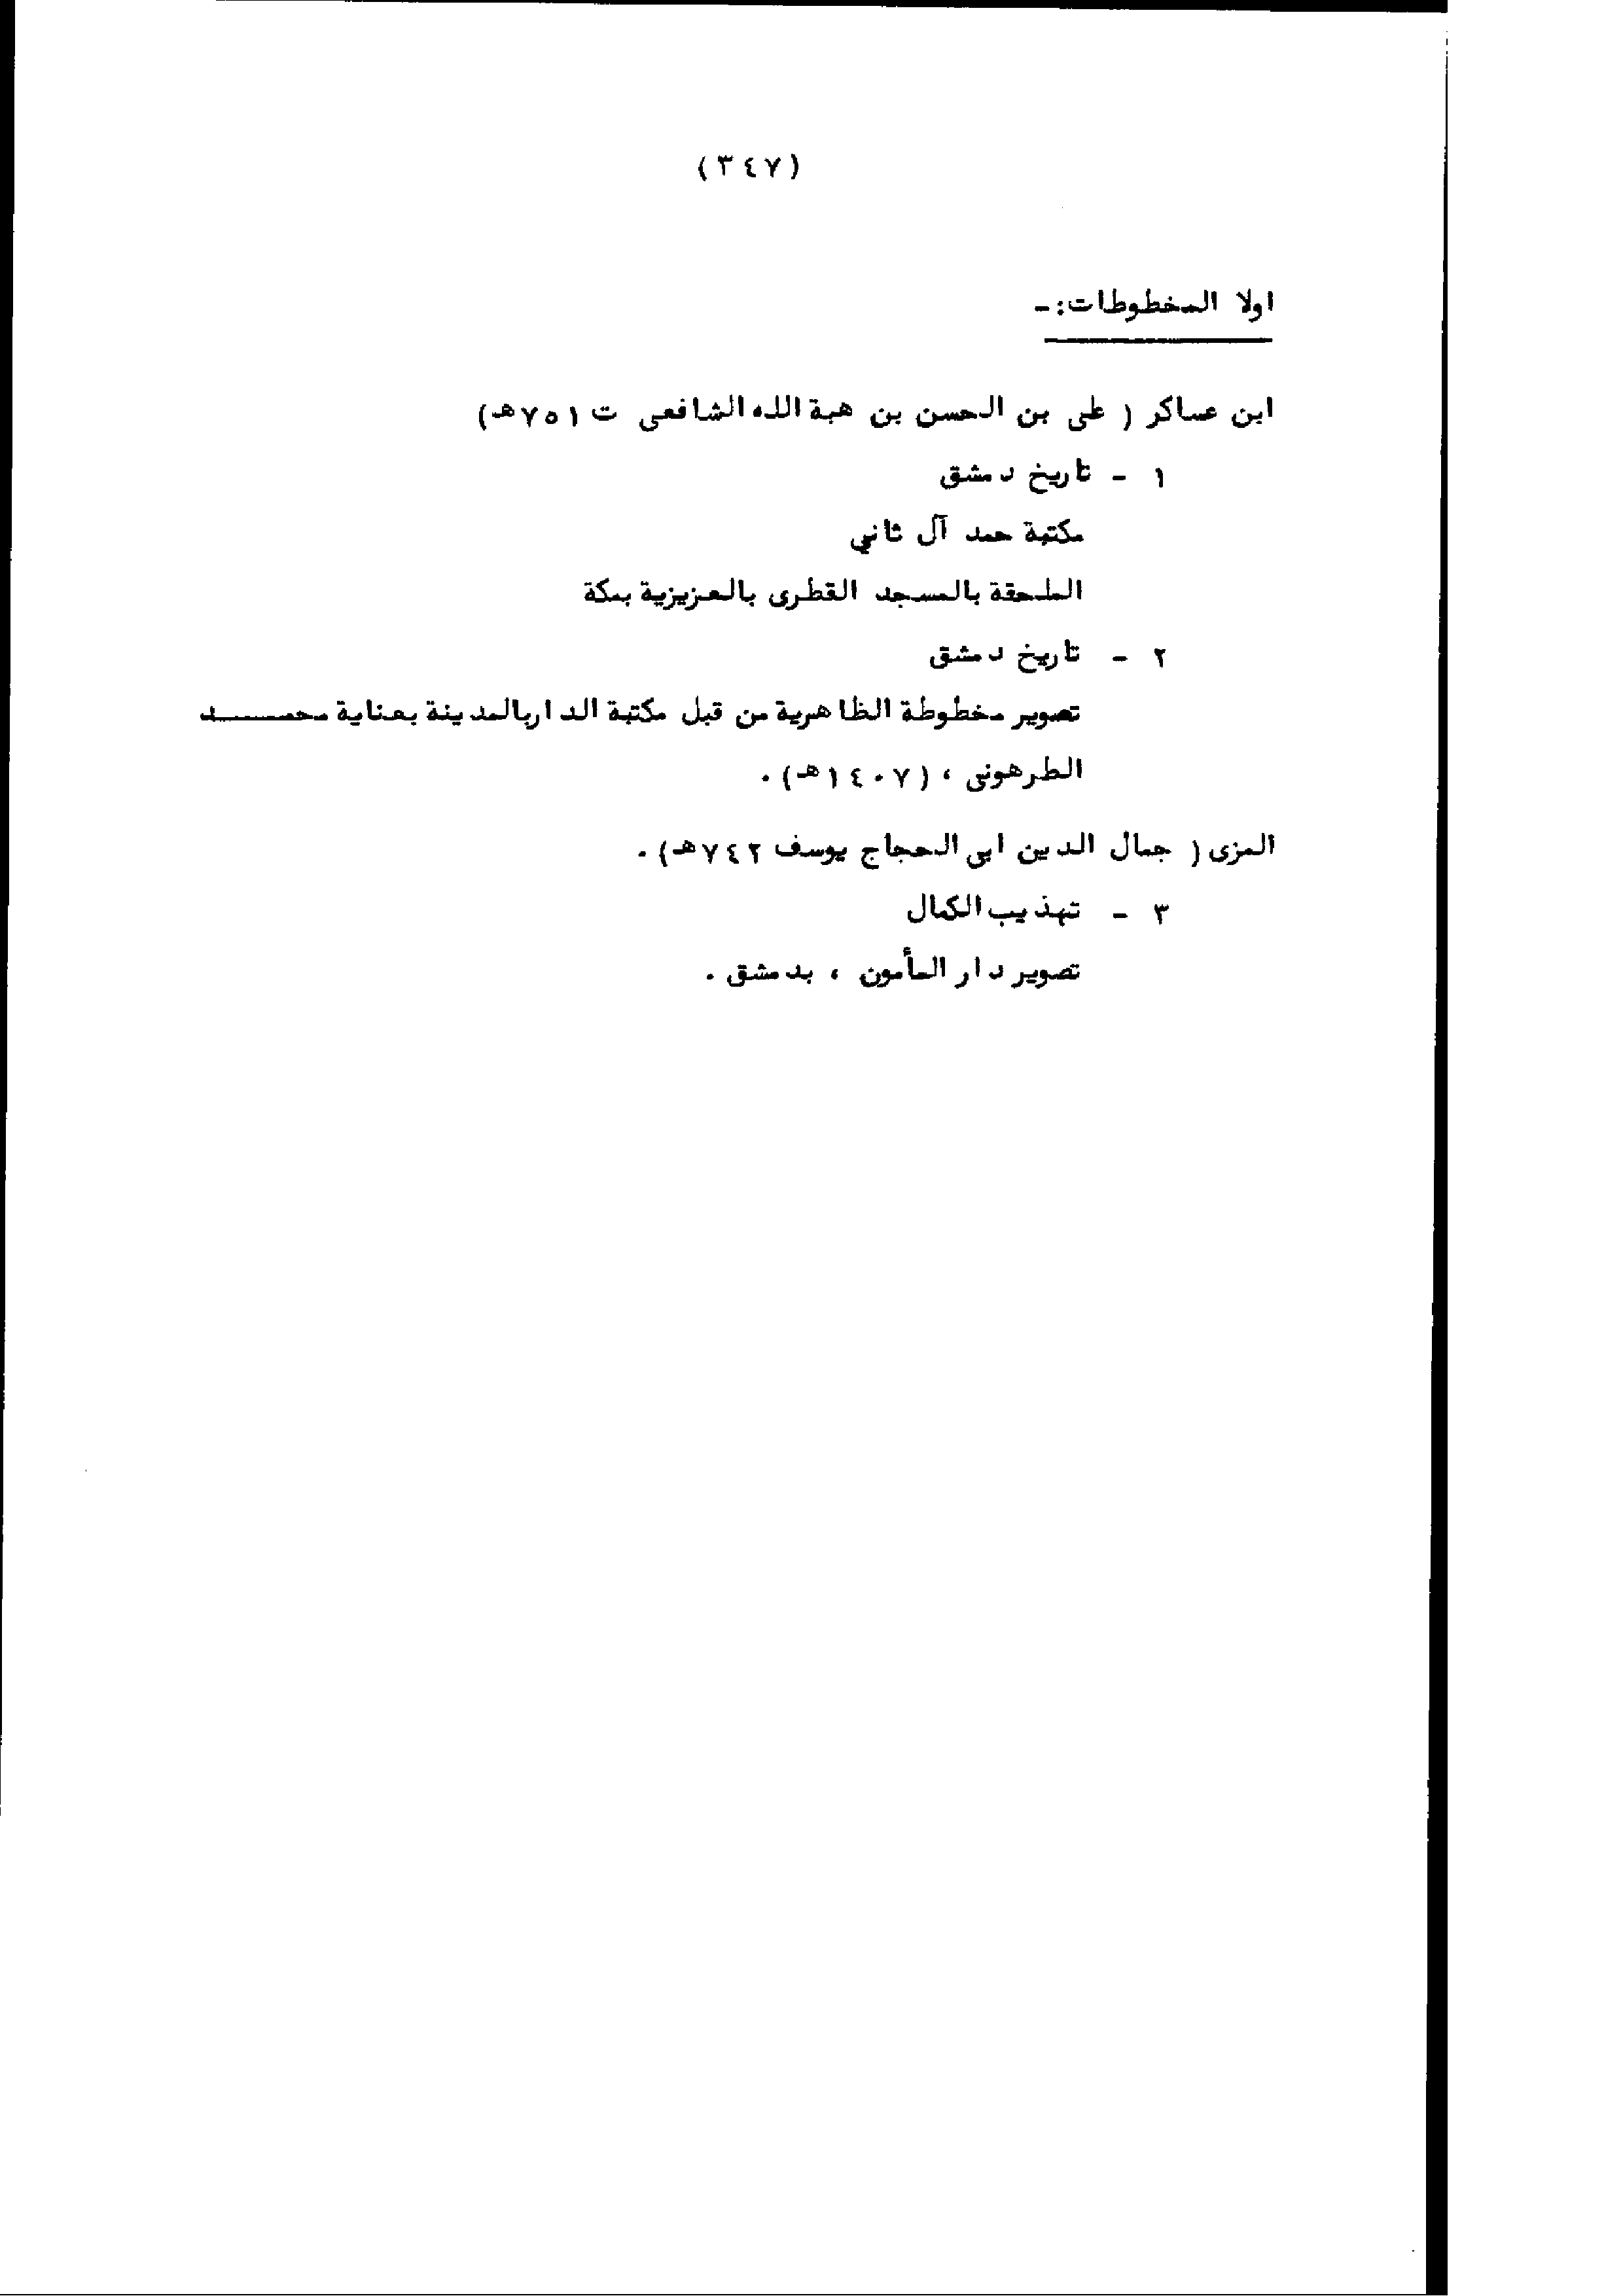 (٣٤٧)
اولا المخطوطات:-
ابن عساكر ( على بن الحسن بن هبة الله الشافعى ت ٧٥١هـ)
١ - تاريخ دمشق
مكتبة حمد آل ثاني
الملحقة بالمسجد القطرى بالعزيزية بمكة
٢ - تاريخ دمشق
تصوير مخطوطة الظاهرية من قبل مكتبة الدار بالمدينة بعناية محمـــــد
الطرهونى ، (١٤٠٧هـ) .
المزى ( جمال الدين ابى الحجاج يوسف ٧٤٢هـ) .
٣ - تهذيب الكمال
تصوير دار المأمون ، بدمشق .